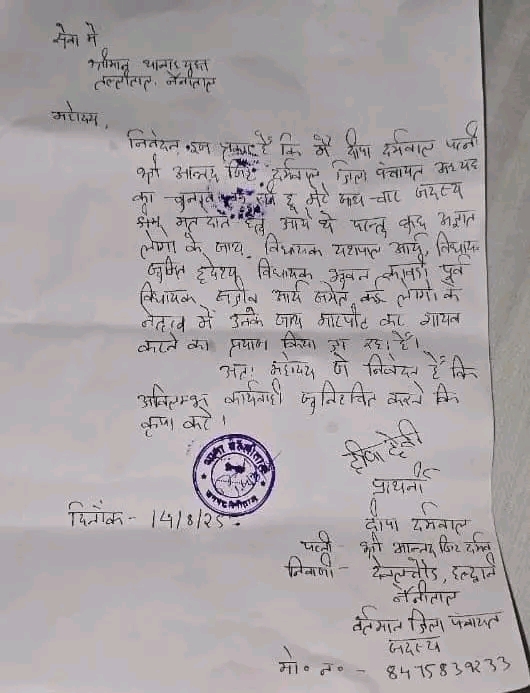 सेवा में
श्रीमान् थानाध्यक्ष
तल्लीताल, नैनीताल
महोदय,
निवेदन इस प्रकार है कि मैं दीपा दर्मवाल पत्नी
श्री आनन्द सिंह दर्मवाल जिला पंचायत अध्यक्ष
का चुनाव हू मेरे साथ चार सदस्य
मतदान हेतु आये थे परन्तु कुछ अज्ञात
लोगो के साथ विधायक यशपाल आर्य, विधायक
सुमित हृदयेश विधायक भुवन कापड़ी पूर्व
विधायक संजीव आर्य समेत कई लोगो के
नेतृत्व में उनके साथ मारपीट कर गायब
करने का प्रयास किया जा रहा है।
अतः महोदय से निवेदन है कि
अविलम्ब कार्यवाही सुनिश्चित करने कि
कृपा करें।
प्रार्थनी
दिनाँक - 14/8/25
दीपा दर्मवाल
पत्नी - श्री आनन्द सिंह दर्मवाल
निवासी - देवलचौड़, हल्द्वानी
नैनीताल
वर्तमान जिला पंचायत
सदस्य
मो० न० - 8475839233